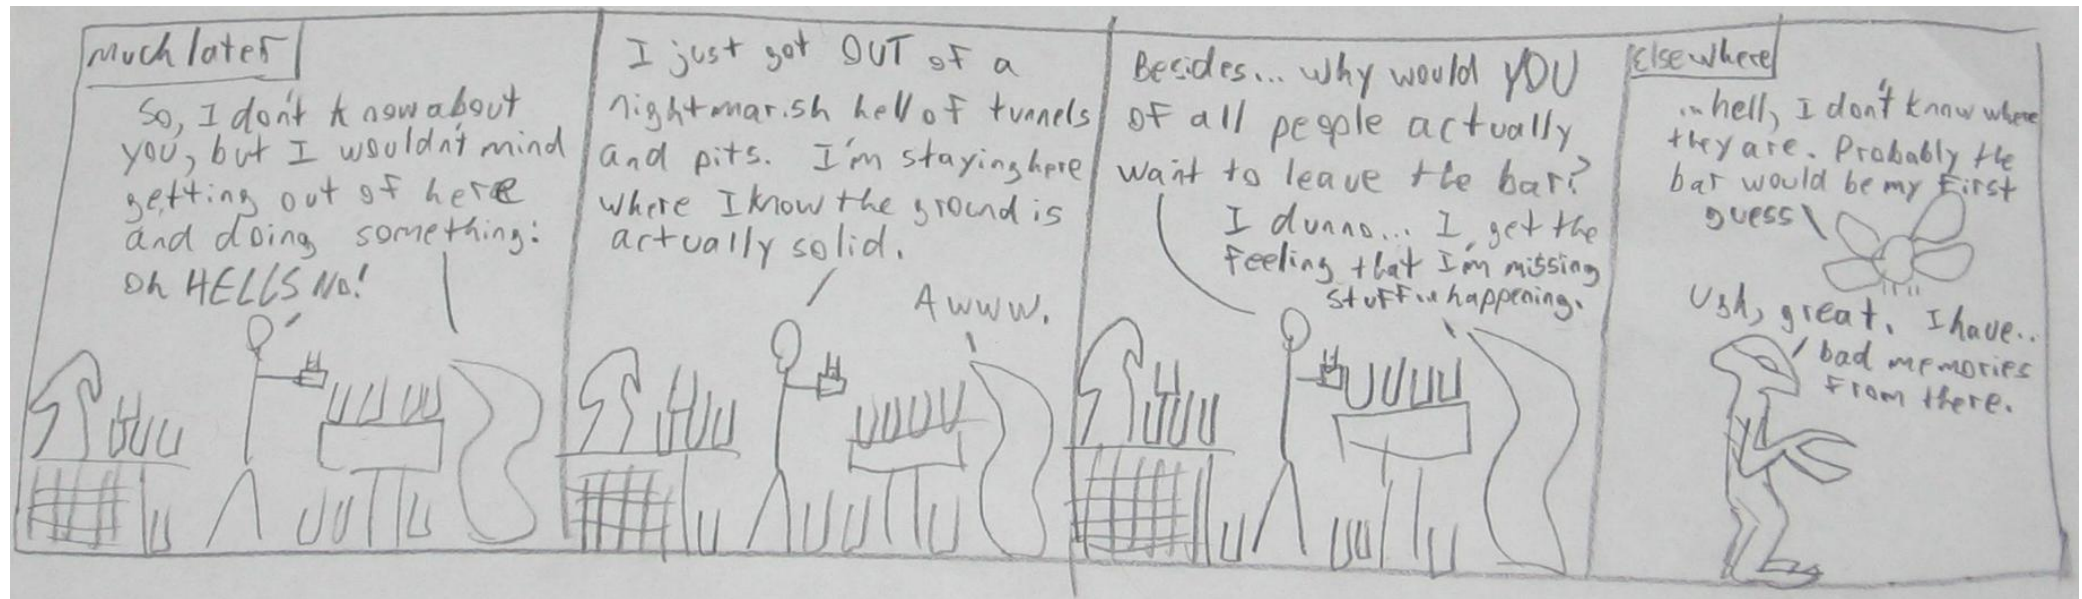 Much later
So, I don't know about
you, but I wouldn't mind
getting out of here
and doing something.
Oh HELLS No!
I just got OUT of a
nightmarish hell of tunnels
and pits. I'm staying here
where I know the ground is
actually solid.
Awww.
Besides... why would YOU
of all people actually
want to leave the bar?
I dunno... I get the
feeling that I'm missing
stuff... happening.
Elsewhere
...hell, I don't know where
they are. Probably the
bar would be my first
guess
Ugh, great. I have...
bad memories
from there.